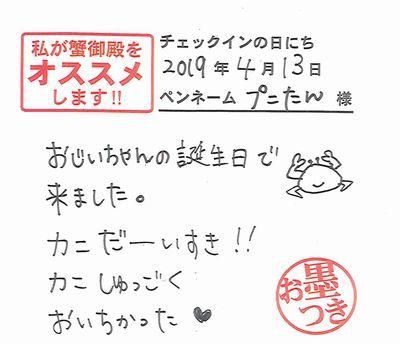 私が蟹御殿を
オススメ
します!!
チェックインの日にち
2019年4月13日
ペンネーム プニたん 様
おじいちゃんの誕生日で
来ました。
カニだーいすき!!
カニしゅっごく
おいちかった♥
墨
おつき